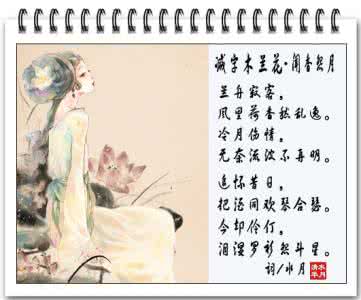 减字木兰花·闻香愁月
兰舟寂
风里荷香愁乱逸。
冷月伤情。
无奈流波不再明。
追怀昔日。
把酒同欢琴合瑟。
今却伶仃。
泪湿罗衫愁斗星。
词/水月